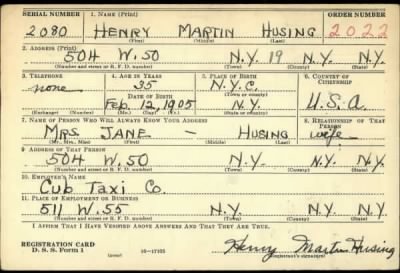 SERIAL NUMBER 1. NAME (Print) ORDER NUMBER
2080 HENRY MARTIN HUSING 2022
(First) (Middle) (Last)
2. ADDRESS (Print)
504 W. 50 N.Y. 19 N.Y. N.Y.
(Number and street or R. F. D. number) (Town) (County) (State)
3. TELEPHONE 4. AGE IN YEARS 5. PLACE OF BIRTH 6. COUNTRY OF CITIZENSHIP
none 35 N.Y.C.
DATE OF BIRTH (Town or county)
Feb. 12, 1905 N.Y. U.S.A.
(Exchange) (No.) (Mo.) (Day) (Yr.) (State or country)
7. NAME OF PERSON WHO WILL ALWAYS KNOW YOUR ADDRESS 8. RELATIONSHIP OF THAT PERSON
MRS. JANE - HUSING wife
(Mr., Mrs., Miss) (First) (Middle) (Last)
9. ADDRESS OF THAT PERSON
504 W. 50 N.Y. N.Y. N.Y.
(Number and street or R. F. D. number) (Town) (County) (State)
10. EMPLOYER'S NAME
Cub Taxi Co.
11. PLACE OF EMPLOYMENT OR BUSINESS
511 W. 55 N.Y. N.Y. N.Y.
(Number and street or R. F. D. number) (Town) (County) (State)
I AFFIRM THAT I HAVE VERIFIED ABOVE ANSWERS AND THAT THEY ARE TRUE.
REGISTRATION CARD
D. S. S. Form 1 (over) 16—17105 Henry Martin Husing